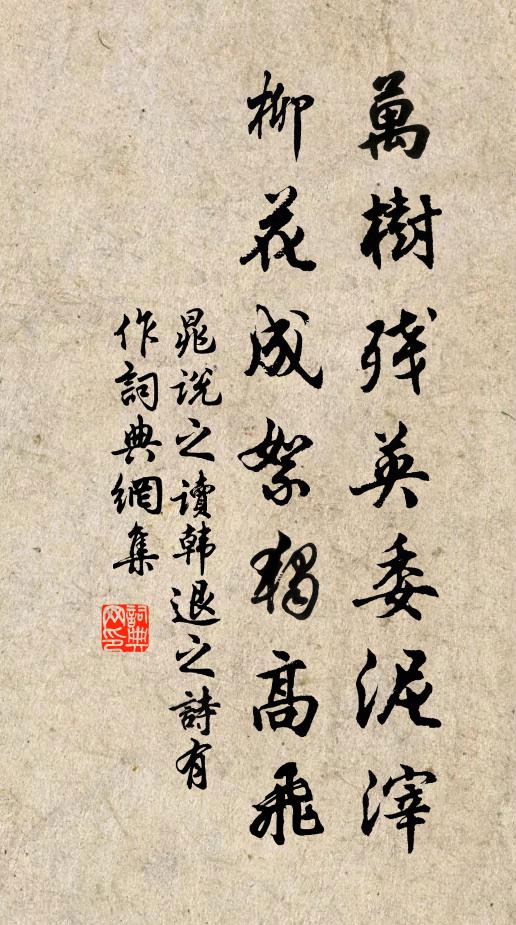 萬樹残英委泥滓
柳花成絮獨高飛
晁説之讀韩退之詩有
作詞典網集
詞典
网印